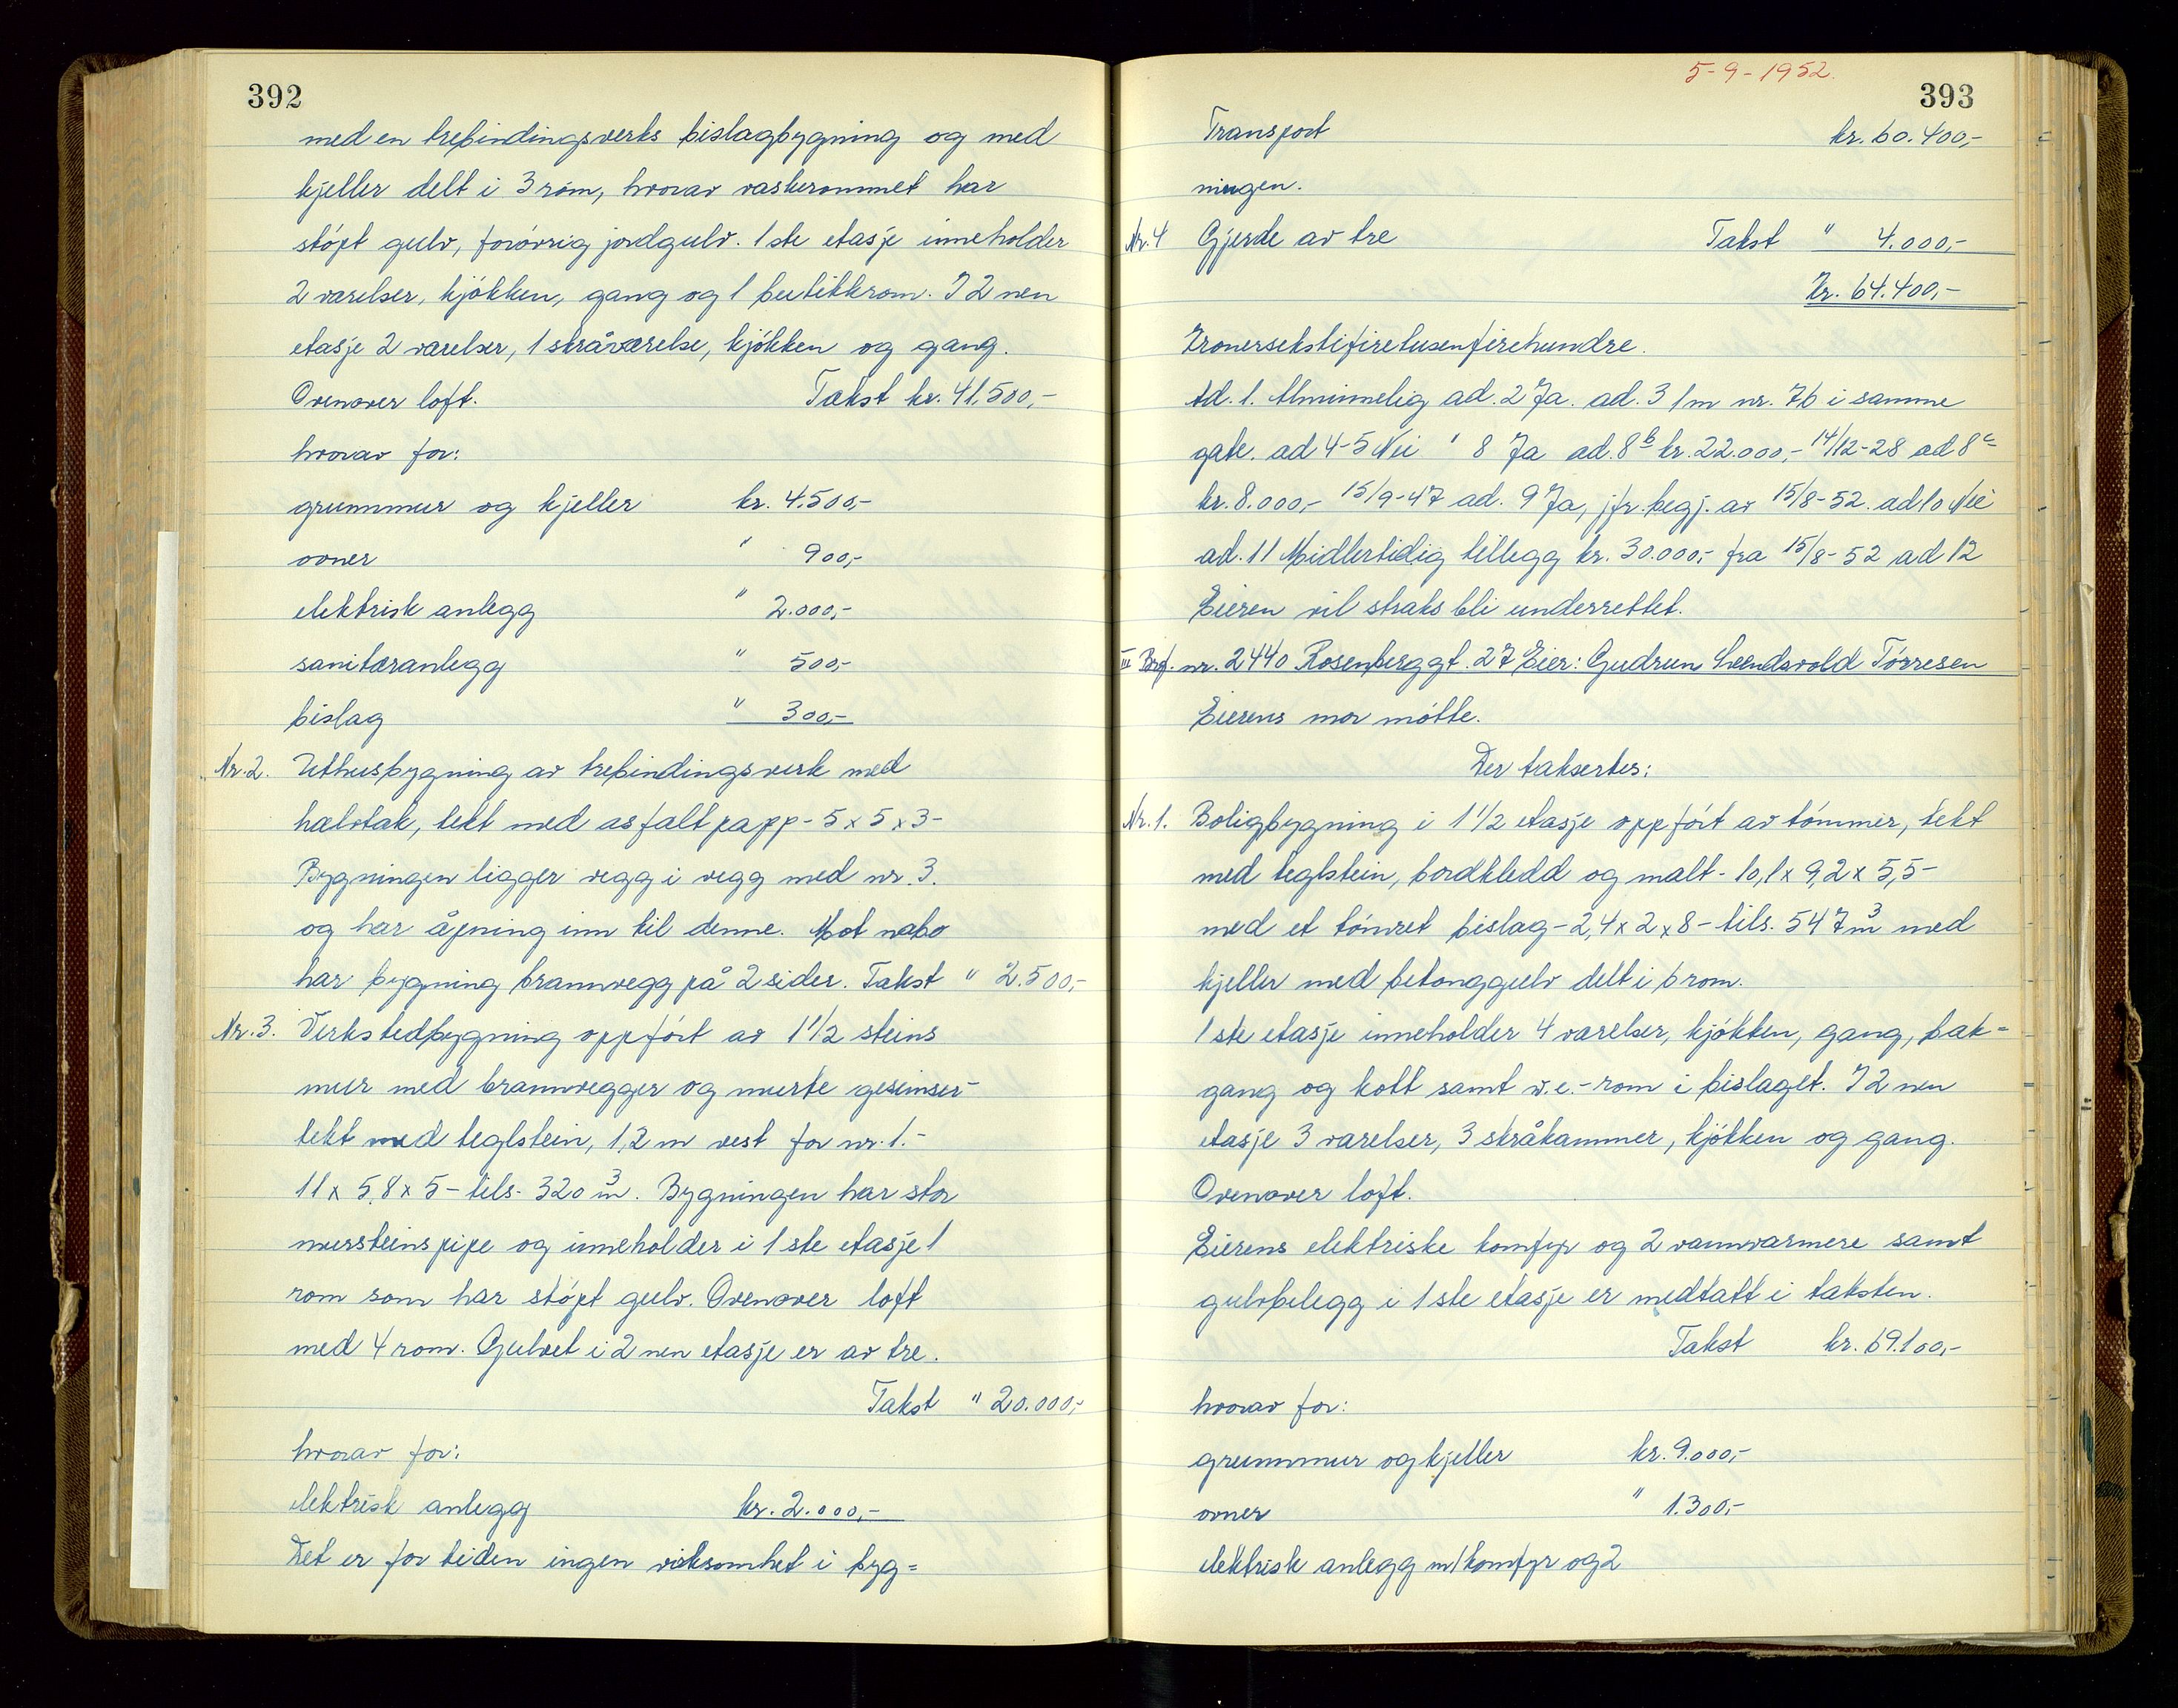 392
med en trebindingsverks bislagbygning og med
kjeller delt i 3 rom, hvorav vaskerommet har
støpt gulv, forøvrig jordgulv. 1ste etasje inneholder
2 værelser, kjøkken, gang og 1 butikkrom. I 2nen
etasje 2 værelser, 1 skråværelse, kjøkken og gang.
Ovenover loft. Takst kr. 41.500,-
hvorav for:
grunnmur og kjeller kr. 4.500,-
ovner " 900,-
elektrisk anlegg " 2.000,-
sanitæranlegg " 500,-
bislag " 300,-
Nr. 2. Uthusbygning av trebindingsverk med
halvtak, tekt med asfaltpapp - 5 x 5 x 3 -
Bygningen ligger vegg i vegg med nr. 3.
og har åpning inn til denne. Mot nabo
har bygning brannvegg på 2 sider. Takst " 2.500,-
Nr. 3. Verkstedbygning oppført av 1 1/2 steins
mur med brannvegger og murte gesimser -
tekt med teglstein, 1,2 m vest for nr. 1. -
11 x 5,8 x 5 - tils. 320 m3. Bygningen har stor
mursteinspipe og inneholder i 1ste etasje 1
rom som har støpt gulv. Ovenover loft
med 4 rom. Gulvet i 2nen etasje er av tre.
Takst " 20.000,-
hvorav for:
elektrisk anlegg kr. 2.000,-
Det er for tiden ingen virksomhet i byg=
5-9-1952.
393
Transport kr. 60.400,-
ningen.
Nr. 4 Gjerde av tre Takst " 4.000,-
Kr. 64.400,-
Kronersekstifiretusenfirehundre.
Ad. 1. Alminnelig ad. 2 Ja. ad. 3 1 m nr. 76 i samme
gate. ad 4-5 Nei " 8 Ja ad. 8b kr. 22.000,- 14/12-28 ad 8c
kr. 8.000,- 15/9-47 ad. 9 Ja, jfr. begj. av 15/8-52. ad 10 Nei
ad. 11 Midlertidig tillegg kr. 30.000,- fra 15/8-52 ad 12
Eieren vil straks bli underrettet.
III Brf. nr. 2440 Rosenberggt. 27 Eier: Gudrun Svendsvold Tørresen
Eierens mor møtte.
Der takseres:
Nr. 1. Boligbygning i 1 1/2 etasje oppført av tømmer, tekt
med teglstein, bordkledd og malt - 10,1 x 9,2 x 5,5 -
med et tømret bislag - 2,4 x 2 x 8 - tils. 547 m3 med
kjeller med betonggulv delt i 6 rom.
1ste etasje inneholder 4 værelser, kjøkken, gang, bak=
gang og kott samt w.c.-rom i bislaget. I 2nen
etasje 3 værelser, 3 skråkammer, kjøkken og gang.
Ovenover loft.
Eierens elektriske komfyr og 2 vannvarmere samt
gulvbelegg i 1ste etasje er medtatt i taksten.
Takst kr. 69.100,-
hvorav for:
grunnmur og kjeller kr. 9.000,-
ovner " 1.300,-
elektrisk anlegg m/komfyr og 2